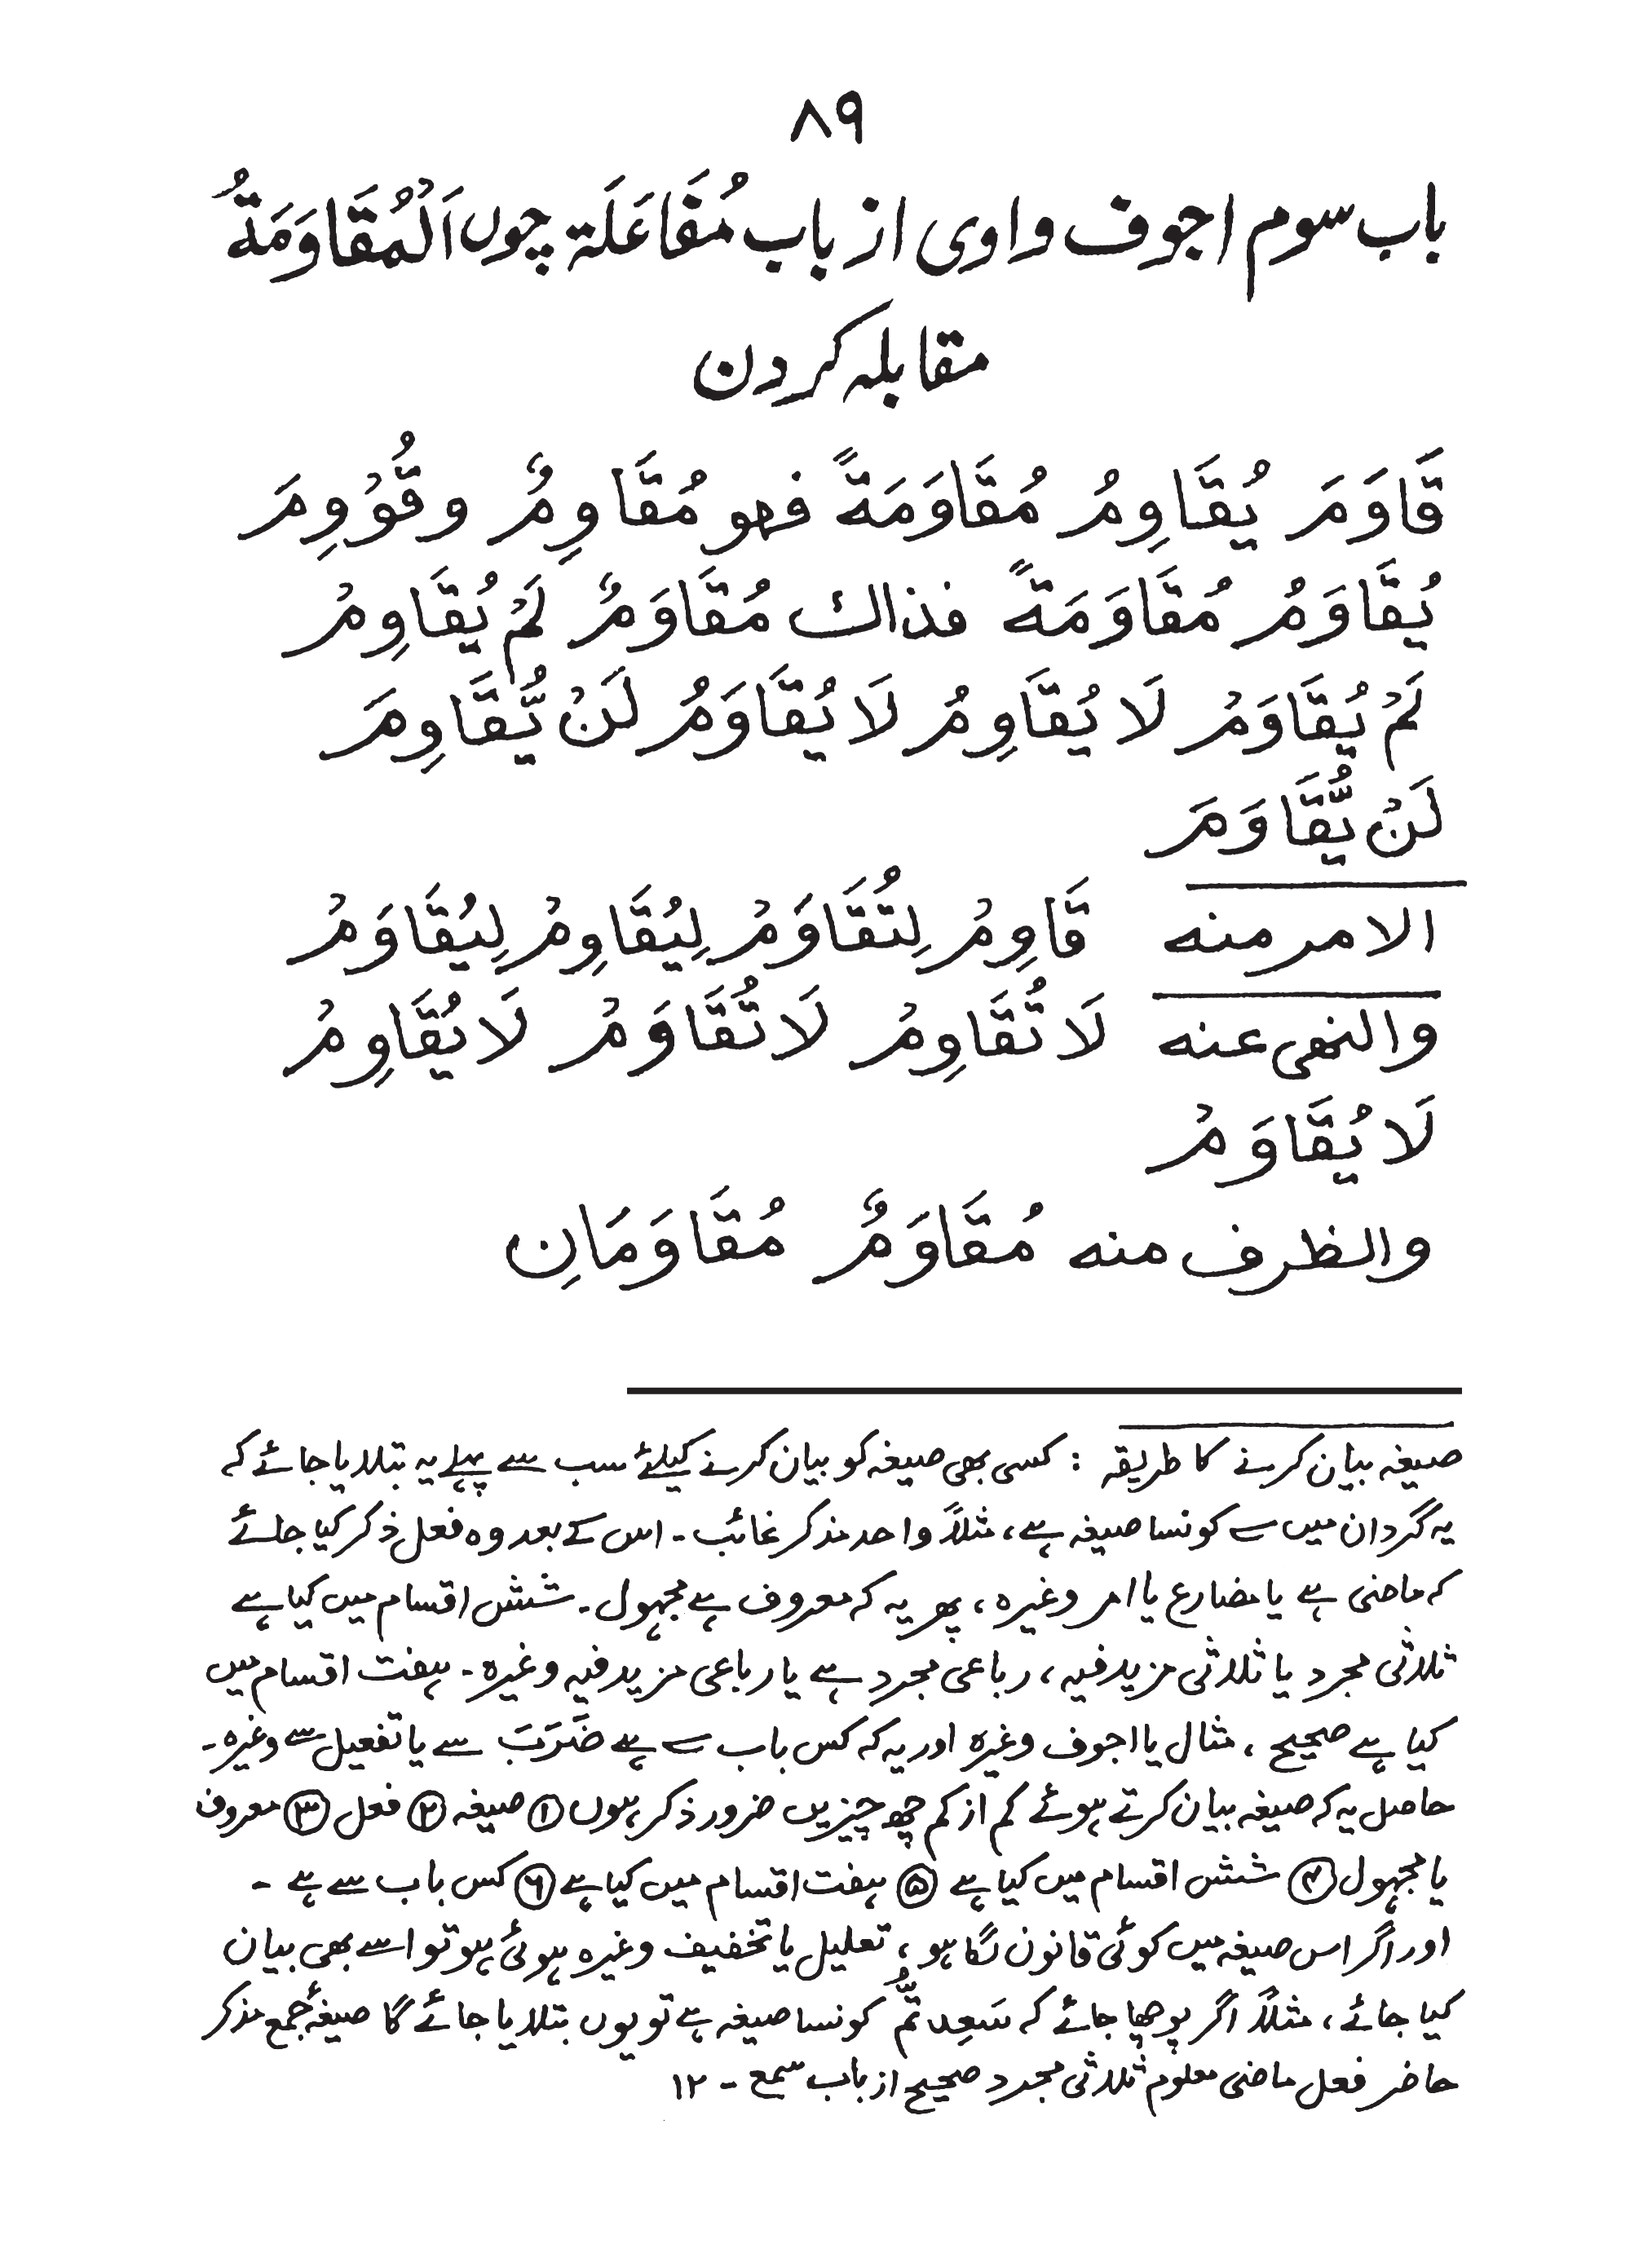 ٨٩
باب سوم اجوف واوی از باب مُفَاعَلَة چوں اَلْمُقَاوَمَةُ
مقابلہ کردن
قَاوَمَ يُقَاوِمُ مُقَاوَمَةً فهو مُقَاوِمٌ و قُوْوِمَ
يُقَاوَمُ مُقَاوَمَةً فذاك مُقَاوَمٌ لَمْ يُقَاوِمْ
لَمْ يُقَاوَمْ لَا يُقَاوِمُ لَا يُقَاوَمُ لَنْ يُّقَاوِمَ
لَنْ يُّقَاوَمَ
الامر منه قَاوِمْ لِتُقَاوَمْ لِيُقَاوِمْ لِيُقَاوَمْ
والنهى عنه لَا تُقَاوِمْ لَا تُقَاوَمْ لَا يُقَاوِمْ
لَا يُقَاوَمْ
والظرف منه مُقَاوَمٌ مُقَاوَمَانِ
صیغہ بیان کرنے کا طریقہ : کسی بھی صیغہ کو بیان کرنے کیلئے سب سے پہلے یہ بتلایا جائے کہ
یہ گردان میں سے کونسا صیغہ ہے، مثلاً واحد مذکر غائب ۔ اس کے بعد وہ فعل ذکر کیا جائے
کہ ماضی ہے یا مضارع یا امر وغیرہ، پھر یہ کہ معروف ہے مجہول ۔ شش اقسام میں کیا ہے
ثلاثی مجرد یا ثلاثی مزید فیہ، رباعی مجرد ہے یا رباعی مزید فیہ وغیرہ ۔ ہفت اقسام میں
کیا ہے صحیح ، مثال یا اجوف وغیرہ اور یہ کہ کس باب سے ہے ضَرَبَ سے یا تفعیل سے وغیرہ ۔
حاصل یہ کہ صیغہ بیان کرتے ہوئے کم از کم چھ چیزیں ضرور ذکر ہوں ① صیغہ ② فعل ③ معروف
یا مجہول ④ شش اقسام میں کیا ہے ⑤ ہفت اقسام میں کیا ہے ⑥ کس باب سے ہے ۔
اور اگر اس صیغہ میں کوئی قانون لگا ہو ، تعلیل یا تخفیف وغیرہ ہوئی ہو تو اسے بھی بیان
کیا جائے ، مثلاً اگر پوچھا جائے کہ سَعِدتُّم کونسا صیغہ ہے تو یوں بتلایا جائے گا صیغۂ جمع مذکر
حاضر فعل ماضی معلوم ثلاثی مجرد صحیح از باب سمع ۔ ۱۲